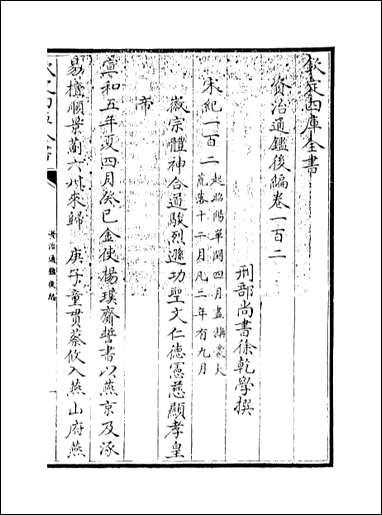 欽定四庫全書
資治通鑑後編卷一百二
刑部尚書徐乾學撰
宋紀一百二
起昭陽單閼四月盡
荒落十二月凡二年有九月
徽宗體神合道駿烈遜功聖文仁德憲慈顯孝皇
帝
宣和五年夏四月癸巳金使楊璞齎誓書以燕京及涿
易檀順景薊六州來歸 庚子童貫蔡攸入燕山府燕
資治通鑑後編